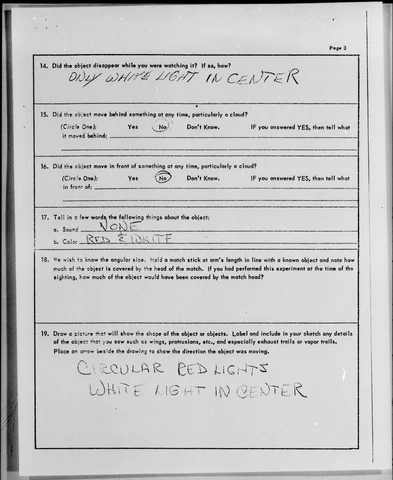 Page 3
14. Did the object disappear while you were watching it? If so, how?
ONLY WHITE LIGHT IN CENTER
15. Did the object move behind something at any time, particularly a cloud?
(Circle One): Yes No Don't Know. IF you answered YES, then tell what
it moved behind:
16. Did the object move in front of something at any time, particularly a cloud?
(Circle One): Yes No Don't Know. IF you answered YES, then tell what
in front of:
17. Tell in a few words the following things about the object:
a. Sound NONE
b. Color RED & WHITE
18. We wish to know the angular size. Hold a match stick at arm's length in line with a known object and note how
much of the object is covered by the head of the match. If you had performed this experiment at the time of the
sighting, how much of the object would have been covered by the match head?
19. Draw a picture that will show the shape of the object or objects. Label and include in your sketch any details
of the object that you saw such as wings, protrusions, etc., and especially exhaust trails or vapor trails.
Place an arrow beside the drawing to show the direction the object was moving.
CIRCULAR RED LIGHTS
WHITE LIGHT IN CENTER